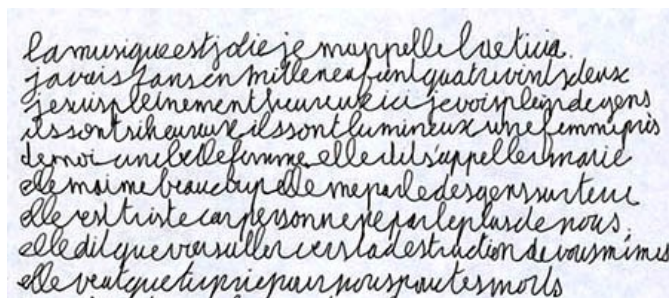 lamusiqueestjoliejemappellelaeticia.
javais7ansenmilleneufcentquatrevintsdeux
jesuispleinementheureuxicijevoispleindegens
ilssontsiheureuxilssontlumineuxunefemmeprès
demoiunebellefemmeelleditsappellermarie
ellemaimebeaucoupellemeparledesgenssurterre
elleesttristecarpersonneneparleplusdenous,
elleditquevousallerverladestructiondevousmêmes
elleveutquetupriepournouspourtesmorts